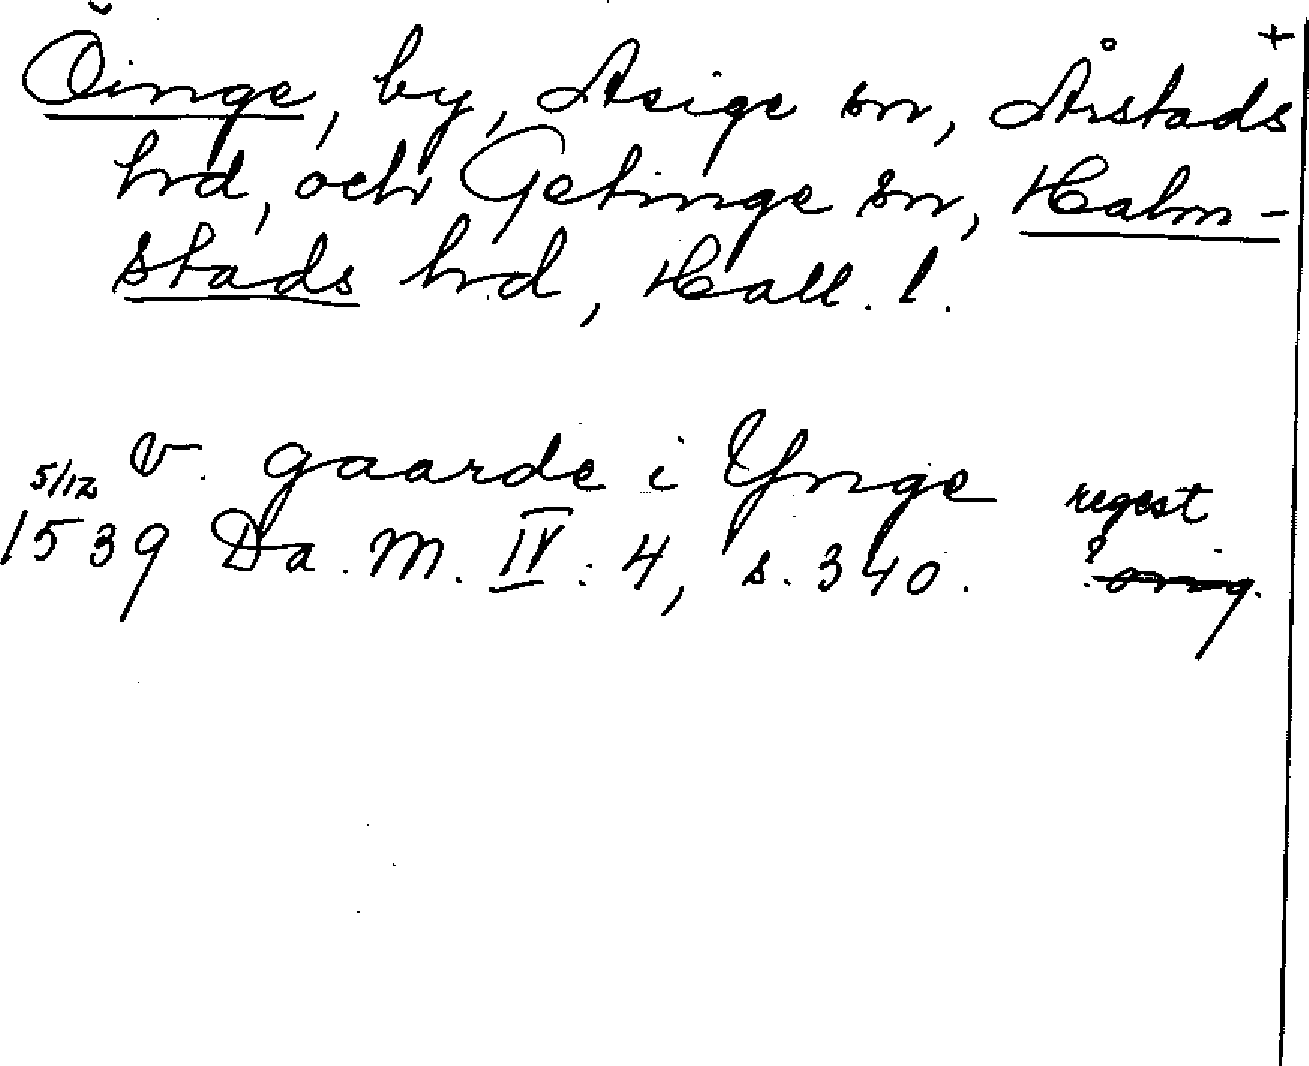 Öinge, by, Asige sn, Årstads +
hrd, och Getinge sn, Halm-
stads hrd, Hall. l.
5/12 V. gaarde i Ynge regest
1539 Da. M. IV: 4, s. 340.